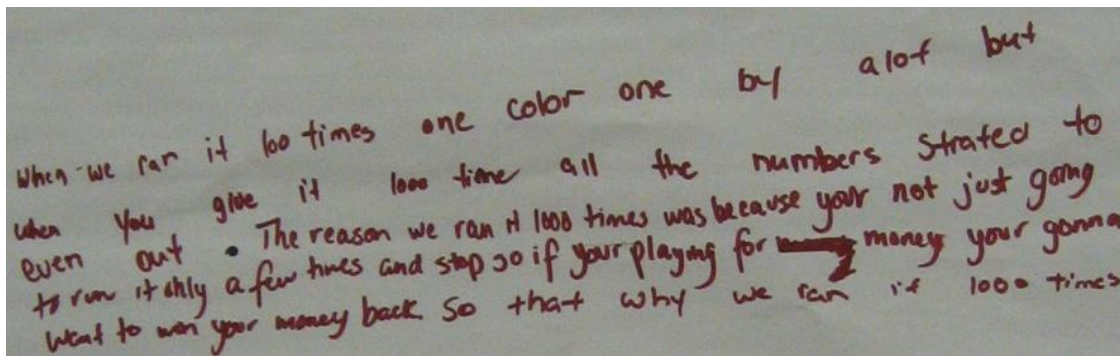 When we ran it 100 times one color one by alot but
when you give it 1000 time all the numbers strated to
even out. The reason we ran it 1000 times was because your not just going
to run it only a few times and stop so if your playing for money your gonna
want to win your money back so that why we ran it 1000 times